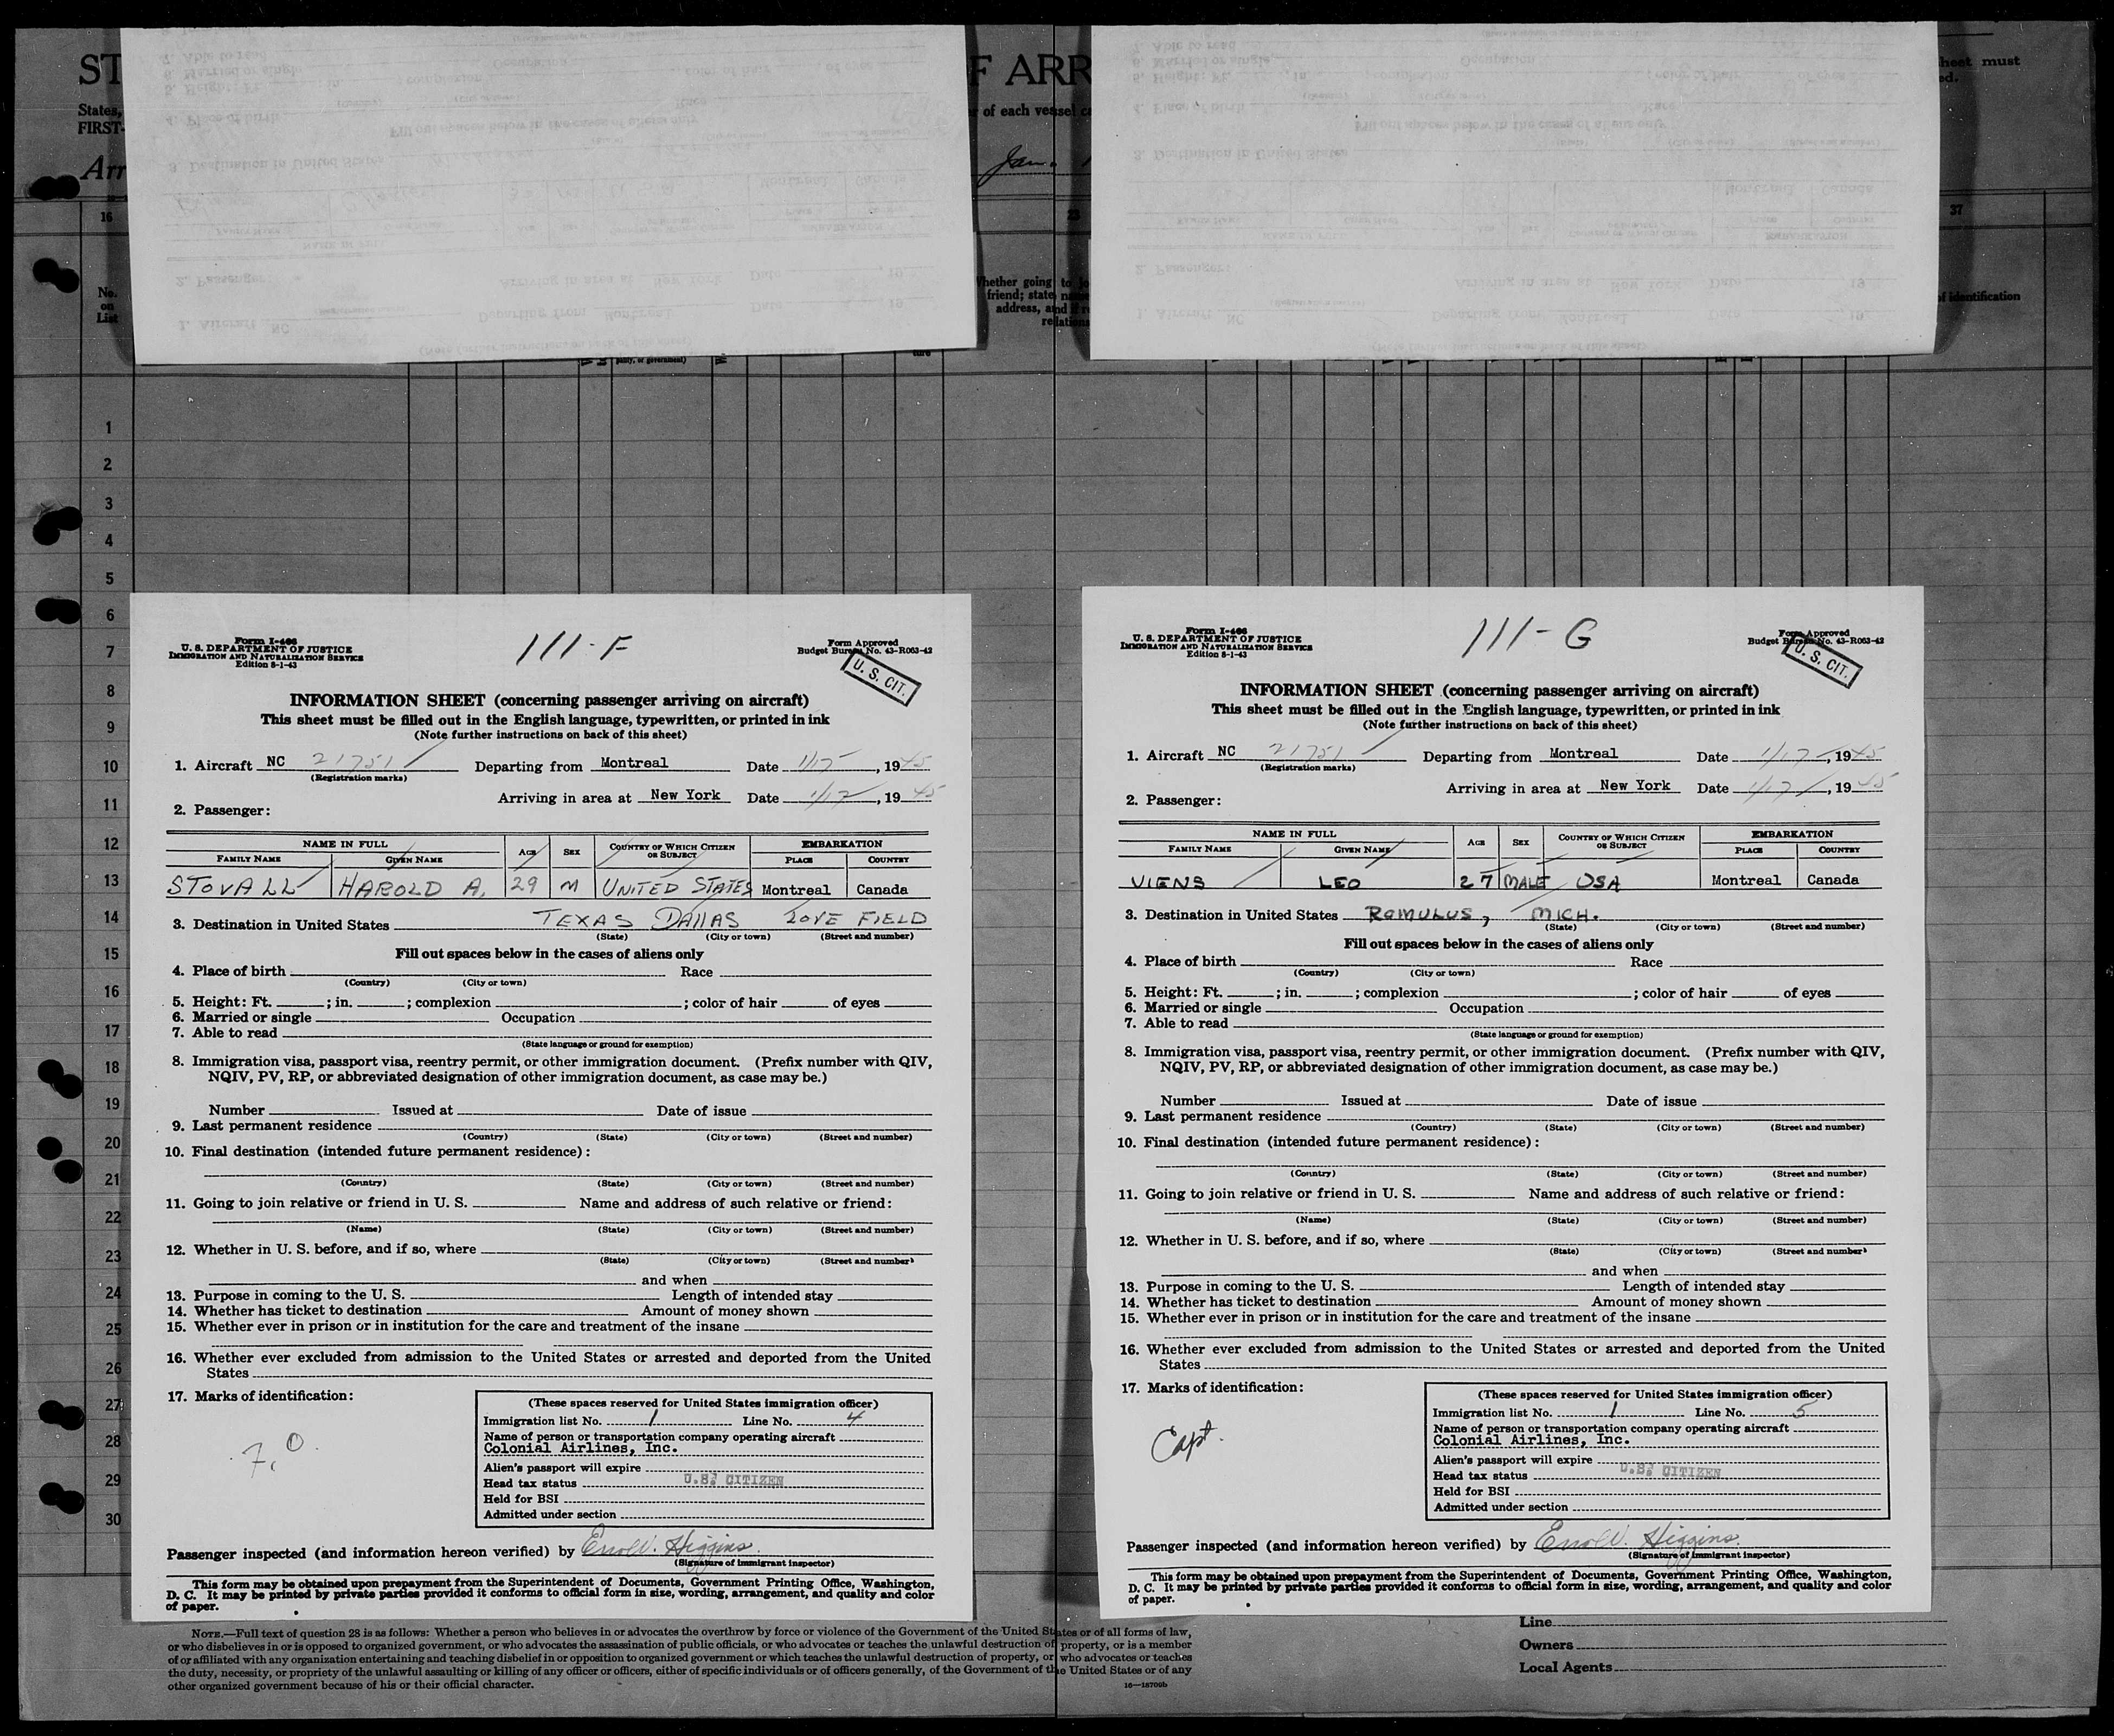 ST
F ARR
heet must
ed.
States,
of each vessel
FIRST-
Arr
Jan.
16
23
37
No.
on
List
Whether going to jo
friend; state
address, and
relations
of identification
party, or government)
ture
1
2
3
4
5
6
7
8
9
10
11
12
13
14
15
16
17
18
19
20
21
22
23
24
25
26
27
28
29
30
Form I-466
U. S. DEPARTMENT OF JUSTICE
IMMIGRATION AND NATURALIZATION SERVICE
Edition 8-1-43
111-F
Form Approved
Budget Bureau No. 43-R063-42
U. S. CIT.
INFORMATION SHEET (concerning passenger arriving on aircraft)
This sheet must be filled out in the English language, typewritten, or printed in ink
(Note further instructions on back of this sheet)
1. Aircraft NC 21751 Departing from Montreal Date 1/17, 1945
(Registration marks)
Arriving in area at New York Date 1/17, 1945
2. Passenger:
NAME IN FULL AGE SEX COUNTRY OF WHICH CITIZEN OR SUBJECT EMBARKATION
FAMILY NAME GIVEN NAME PLACE COUNTRY
STOVALL HAROLD A. 29 M UNITED STATES Montreal Canada
3. Destination in United States TEXAS DALLAS LOVE FIELD
(State) (City or town) (Street and number)
Fill out spaces below in the cases of aliens only
4. Place of birth Race
(Country) (City or town)
5. Height: Ft. ; in. ; complexion ; color of hair of eyes
6. Married or single Occupation
7. Able to read
(State language or ground for exemption)
8. Immigration visa, passport visa, reentry permit, or other immigration document. (Prefix number with QIV,
NQIV, PV, RP, or abbreviated designation of other immigration document, as case may be.)
Number Issued at Date of issue
9. Last permanent residence
(Country) (State) (City or town) (Street and number)
10. Final destination (intended future permanent residence):
(Country) (State) (City or town) (Street and number)
11. Going to join relative or friend in U. S. Name and address of such relative or friend:
(Name) (State) (City or town) (Street and number)
12. Whether in U. S. before, and if so, where
(State) (City or town) (Street and number)
and when
13. Purpose in coming to the U. S. Length of intended stay
14. Whether has ticket to destination Amount of money shown
15. Whether ever in prison or in institution for the care and treatment of the insane
16. Whether ever excluded from admission to the United States or arrested and deported from the United
States
17. Marks of identification:
F.O.
(These spaces reserved for United States immigration officer)
Immigration list No. 1 Line No. 4
Name of person or transportation company operating aircraft
Colonial Airlines, Inc.
Alien's passport will expire
Head tax status U.S. CITIZEN
Held for BSI
Admitted under section
Passenger inspected (and information hereon verified) by Errol W. Higgins
(Signature of immigrant inspector)
This form may be obtained upon prepayment from the Superintendent of Documents, Government Printing Office, Washington,
D. C. It may be printed by private parties provided it conforms to official form in size, wording, arrangement, and quality and color
of paper.
Form I-466
U. S. DEPARTMENT OF JUSTICE
IMMIGRATION AND NATURALIZATION SERVICE
Edition 8-1-43
111-G
Form Approved
Budget Bureau No. 43-R063-42
U. S. CIT.
INFORMATION SHEET (concerning passenger arriving on aircraft)
This sheet must be filled out in the English language, typewritten, or printed in ink
(Note further instructions on back of this sheet)
1. Aircraft NC 21751 Departing from Montreal Date 1/17, 1945
(Registration marks)
Arriving in area at New York Date 1/17, 1945
2. Passenger:
NAME IN FULL AGE SEX COUNTRY OF WHICH CITIZEN OR SUBJECT EMBARKATION
FAMILY NAME GIVEN NAME PLACE COUNTRY
VIENS LEO 27 MALE USA Montreal Canada
3. Destination in United States ROMULUS, MICH.
(State) (City or town) (Street and number)
Fill out spaces below in the cases of aliens only
4. Place of birth Race
(Country) (City or town)
5. Height: Ft. ; in. ; complexion ; color of hair of eyes
6. Married or single Occupation
7. Able to read
(State language or ground for exemption)
8. Immigration visa, passport visa, reentry permit, or other immigration document. (Prefix number with QIV,
NQIV, PV, RP, or abbreviated designation of other immigration document, as case may be.)
Number Issued at Date of issue
9. Last permanent residence
(Country) (State) (City or town) (Street and number)
10. Final destination (intended future permanent residence):
(Country) (State) (City or town) (Street and number)
11. Going to join relative or friend in U. S. Name and address of such relative or friend:
(Name) (State) (City or town) (Street and number)
12. Whether in U. S. before, and if so, where
(State) (City or town) (Street and number)
and when
13. Purpose in coming to the U. S. Length of intended stay
14. Whether has ticket to destination Amount of money shown
15. Whether ever in prison or in institution for the care and treatment of the insane
16. Whether ever excluded from admission to the United States or arrested and deported from the United
States
17. Marks of identification:
Capt.
(These spaces reserved for United States immigration officer)
Immigration list No. 1 Line No. 5
Name of person or transportation company operating aircraft
Colonial Airlines, Inc.
Alien's passport will expire
Head tax status U.S. CITIZEN
Held for BSI
Admitted under section
Passenger inspected (and information hereon verified) by Errol W. Higgins
(Signature of immigrant inspector)
This form may be obtained upon prepayment from the Superintendent of Documents, Government Printing Office, Washington,
D. C. It may be printed by private parties provided it conforms to official form in size, wording, arrangement, and quality and color
of paper.
NOTE.—Full text of question 28 is as follows: Whether a person who believes in or advocates the overthrow by force or violence of the Government of the United States or of all forms of law,
or who disbelieves in or is opposed to organized government, or who advocates the assassination of public officials, or who advocates or teaches the unlawful destruction of property, or is a member
of or affiliated with any organization entertaining and teaching disbelief in or opposition to organized government or which teaches the unlawful destruction of property, or who advocates or teaches
the duty, necessity, or propriety of the unlawful assaulting or killing of any officer or officers, either of specific individuals or of officers generally, of the Government of the United States or of any
other organized government because of his or their official character.
16—18709b
Line
Owners
Local Agents